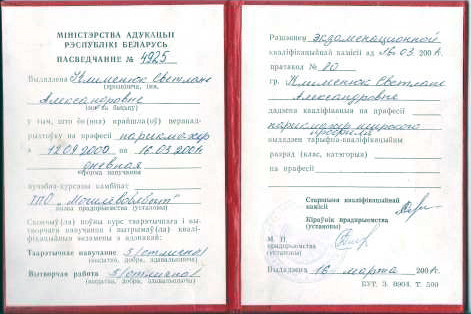 МІНІСТЭРСТВА АДУКАЦЫІ
РЭСПУБЛІКІ БЕЛАРУСЬ
ПАСВЕДЧАННЕ № 4925
Выдадзена Клименюк Светлане
(прозвішча, імя,
Александровне
імя па бацьку)
у тым, што ён(яна) прайшла(оў) перапад-
рыхтоўку на прафесіі парикмахер
з 12.09.2000 па 16.03.2001
дневная
форма навучання
вучэбна-курсавы камбінат
ТПО „Могилевоблбыт"
назва прадпрыемства (установы)
Скончыў(ла) поўны курс тэарэтычнага і вы-
творчага навучання і вытрымаў(ла) квалі-
фікацыйныя экзамены з адзнакай:
Тэарэтычнае навучанне 5/отлично/
(выдатна, добра, здавальняюча)
Вытворчая работа 5/отлично/
(выдатна, добра, здавальняюча)
Рашэннем экзаменационной
кваліфікацыйнай камісіі ад 16.03.2001
пратакол № 80
гр. Клименюк Светлане
Александровне
дадзена кваліфікацыя па прафесіі
парикмахер широкого
профиля
выдадзен тарыфна-кваліфікацыйны
разрад (клас, катэгорыя)
па прафесіі
Старшыня кваліфікацыйнай
камісіі
Кіраўнік прадпрыемства
(установы)
М. П.
прадпрыемства
(установы)
Выдадзена 16 марта 2001
БУТ. З. 8904. Т. 500